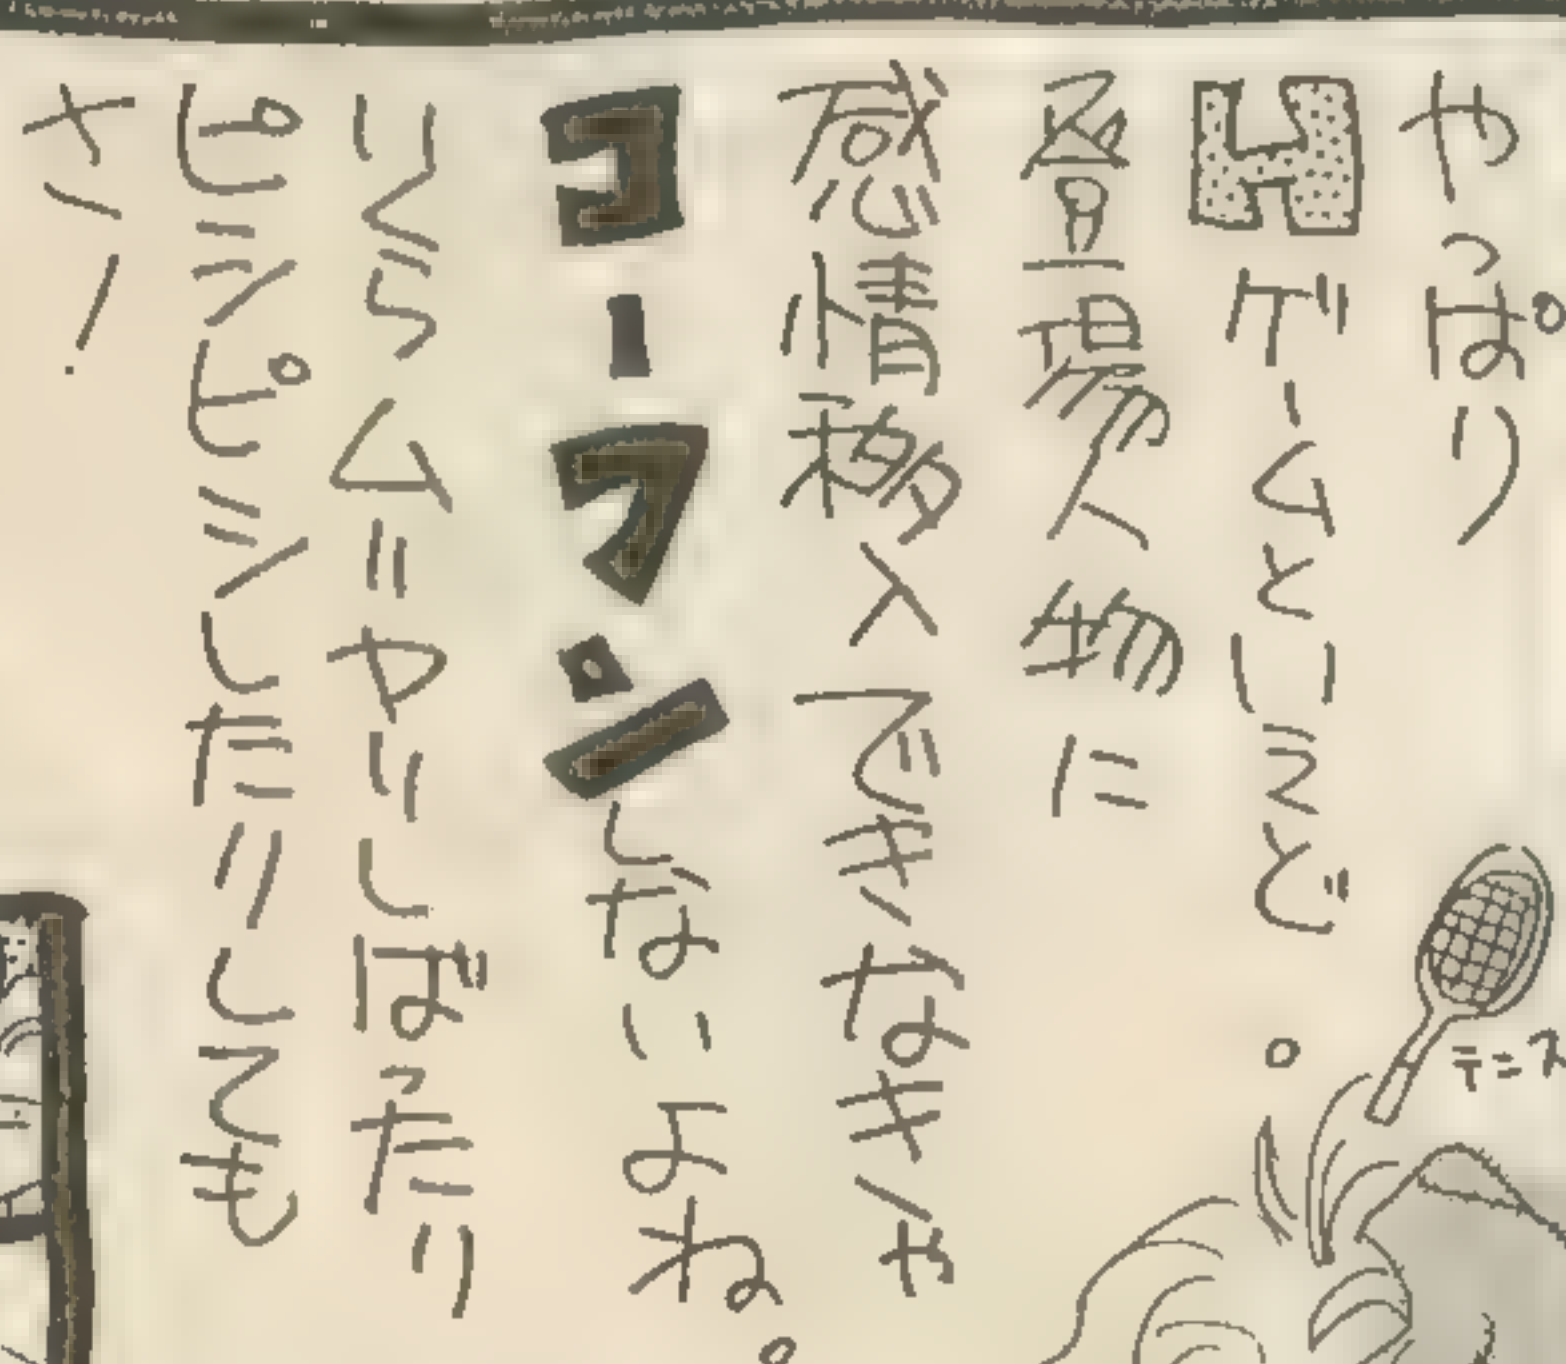 やっぱり
Hゲームといえど。
登場人物に
感情移入できなきゃ
コーフンしないよね。
いくらムリヤリしばったり
ピシピシしたりしても
さ！
テニス